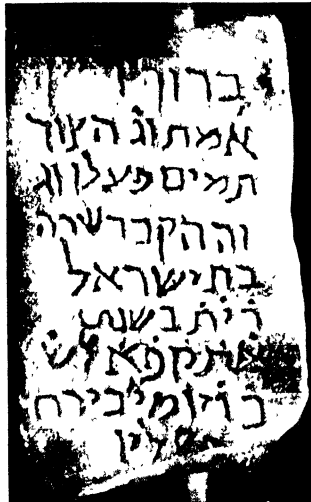 ברוך
אמת וג הצור
תמים פעלו וג
זה הקבר שרה
בת ישראל
בשנת
אתקפא לש
יומי בירח